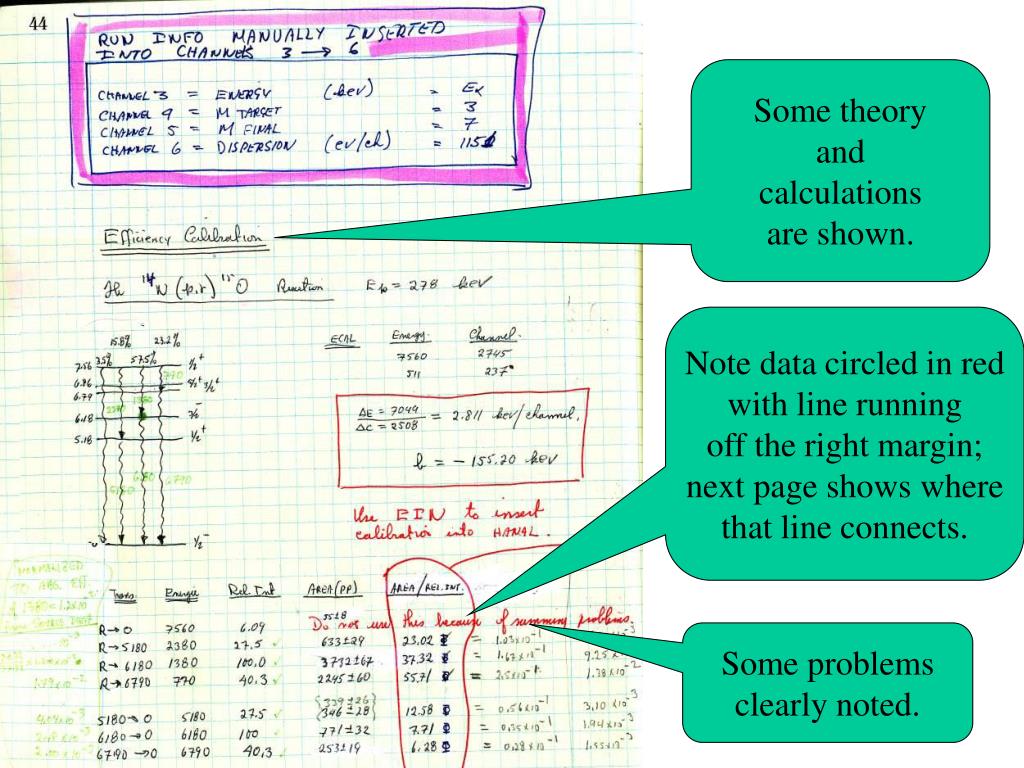 44
RUN INFO MANUALLY INSERTED
INTO CHANNELS 3 → 6
CHANNEL 3 = ENERGY (kev) = Ex
CHANNEL 4 = M TARGET = 3
CHANNEL 5 = M FINAL = 7
CHANNEL 6 = DISPERSION (ev/ch) = 1150
Efficiency Calibration
The ¹⁴N (p,γ) ¹⁵O Reaction Ep = 278 keV
15.8% 23.2%
3.5% 57.5%
7.56 ½⁺
770
6.86
6.79
6.18
5.18 ½⁺
6180
6790
½⁻
ECAL Energy Channel
7560 2745
511 237
ΔE = 7049
ΔC = 2508
= 2.811 keV/channel.
b = - 155.20 keV
Use EIN to insert
calibration into HANAL.
NORMALIZED
TO ABS. Eff.
Trans. Energie Rel. Int AREA(PP) AREA/REL.INT.
55±8
Do not use this because of summing problems.
R→0 7560 6.09 633±29 23.02 = 1.03x10⁻¹
R→5180 2380 27.5 ✓ 3732±67 37.32 = 1.67x10⁻¹
R→6180 1380 100.0 ✓ 2245±60 55.71 = 2.5x10⁻¹
R→6790 770 40.3 ✓
(339±26)
5180→0 5180 27.5 ✓ (346±28) 12.58 = 0.56x10⁻¹ 3.10 x10⁻³
6180→0 6180 100 ✓ 771±32 7.71 = 0.35x10⁻¹ 1.94x10⁻³
6790→0 6790 40.3 ✓ 253±19 6.28 = 0.28x10⁻¹ 1.55x10⁻³
Some theory
and
calculations
are shown.
Note data circled in red
with line running
off the right margin;
next page shows where
that line connects.
Some problems
clearly noted.